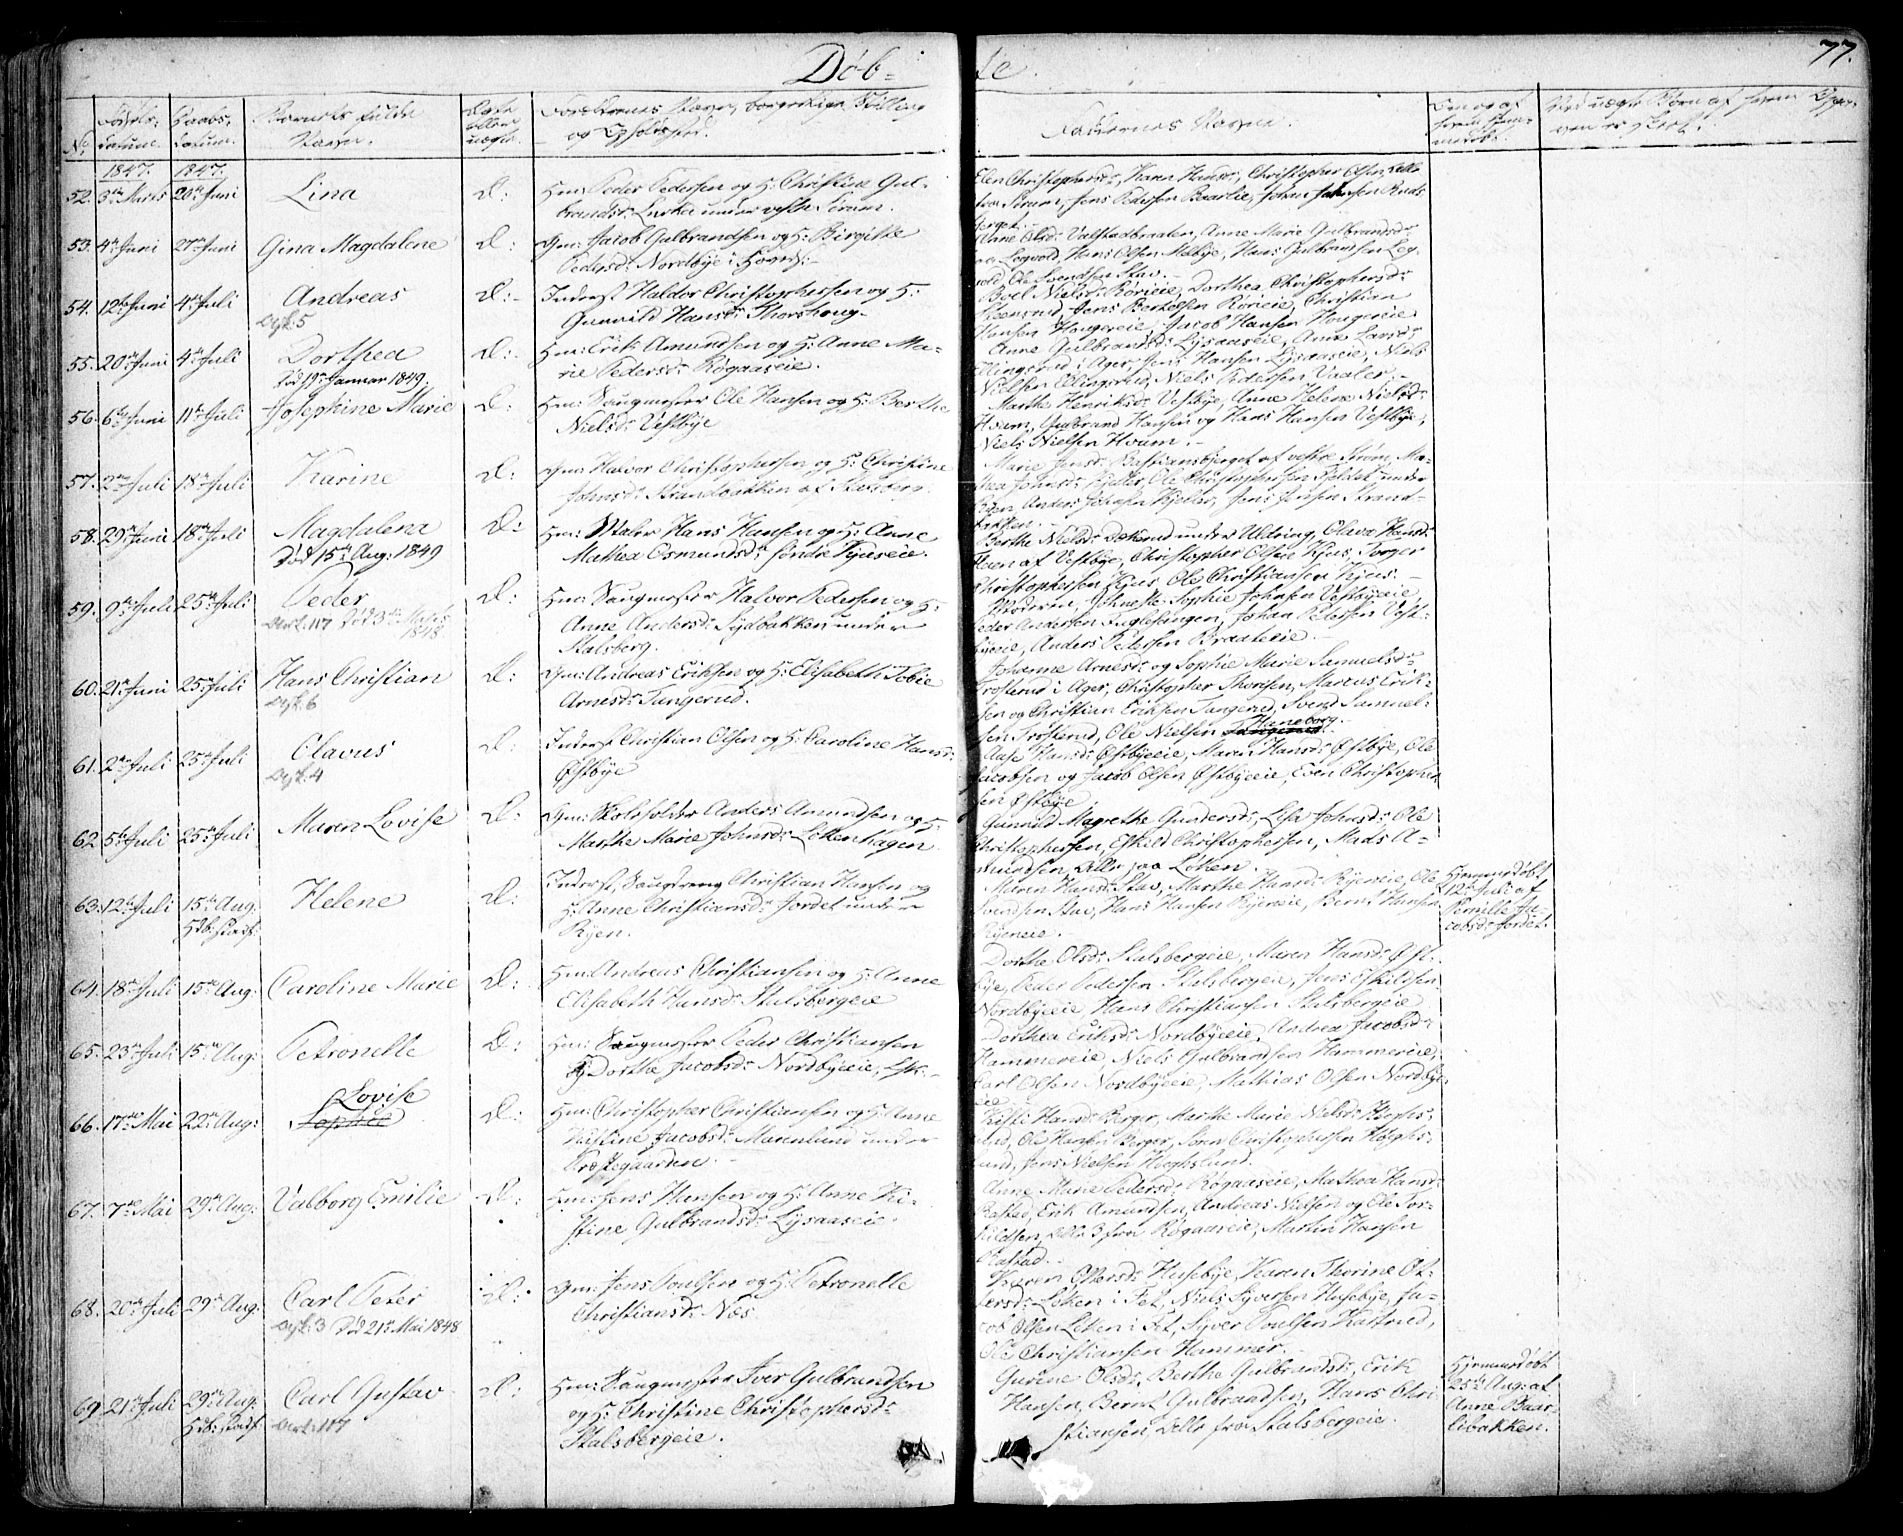 Døb-
te.
77.
No.
Fødsels-
datum.
Daabs-
datum.
Barnets fulde
Navn.
Ægte
eller
uægte.
Forældrenes Navn, borgerlige Stilling
og Opholdssted.
Faddernes Navne.
1847. 1847.
52. 3die Marts 20de Juni Lina Æ: Hm: Peder Pedersen og H: Christine Gul-
brandsd: under vestre Sørum.
Elen Christophersd:, Karen Hansd:, Christopher Olsen, alle
fra Sørum, Jens Pedersen Baarlie, Johan Johnsen Ruds-
berget.
53. 4de Juni 27de Juni Gina Magdalene Æ: Gm: Jacob Gulbrandsen og H: Birgitte
Pedersd: Nordbye i
Anne Olsd: Valstadbraaten, Anne Marie Gulbrandsd:
Hans Olsen Melbye, Hans Gulbrandsen Leg-
vold, Ole Svendsen Stav.
54. 12te Juni 4de Juli Andreas Æ: Inderst Haldor Christophersen og H:
Dysk: 5
Gunvild Hansd: Thorshoug.
Boel Nielsd: Røricie, Dorthea Christophersd:
Steensrud, Jens Bertelsen Røricie, Christian
Hansen Hougereie, Jacob Hansen Hougereie
55. 20de Juni 4de Juli Dorthea Æ: Hm: Erik Amundsen og H: Anne Ma-
Død 19de Januar 1849.
rie Pedersd: Røgaaseie.
Anne Gulbrandsd: Lysaaseie, Anne Larsd:
Ellingsrud i Ager, Jens Hansen Lysaaseie, Niels
Nielsen Ellingsrud, Niels Pedersen Vaaler.
56. 6te Juni 11te Juli Josephine Marie Æ: Hm: Saugmester Ole Hansen og H: Berthe
Nielsd: Vestbye
Marthe Henriksd: Vestbye, Anne Helene Nielsd:
Hvam, Gulbrand Hansen og Hans Hansen Vestbye,
Niels Nielsen Hvam.
57. 2den Juli 18de Juli Karine Æ: Gm: Halvor Christophersen og H: Christine
Johnsd: Strandbakken af Stalsberg.
Marie Jensd: Bastiansberget af vestre Strøm, Ma-
thea Johnsd: Kjeller, Ole Christophersen Fjeldet under
Ryen, Anders Johnsen Kjeller, Jens Jensen Strand-
bakken.
58. 29de Juni 18de Juli Magdalena Æ: Hm: Maler Hans Hansen og H: Anne
Død 15de Aug: 1849
Mathea Osmundsd: søndre Kjuseie.
Berthe Nielsd: under Uldring, Olava Hansd:
Haen af Vestbye, Christopher Olsen Kjus, Torger
Christophersen Kjus, Ole Christiansen Kjus.
59. 9de Juli 25de Juli Peder Æ: Hm: Saugmester Halvor Pedersen og H:
Død 3die Marts
1848
Anne Andersd: Sydbakken under
Stalsberg.
Moderen, Johneste Sophie Johnsen Vestbyeie,
Peder Andersen Fuglesangen, Johan Pedersen Vest-
byeie, Anders Pedersen Braateeie.
60. 21de Juni 25de Juli Hans Christian Æ: Gm: Andreas Eriksen og H: Elisabeth Tobie
Dysk: 6
Arnesd: Tangerud.
Johanne Arnesd: og Sophie Marie Samuelsd:
Trosterud i Ager, Christopher Thorsen, Marcus Erik-
sen og Christian Eriksen Tangerud, Svend Samuel-
sen Trosterud, Ole Nielsen Haneborg.
61. 2den Juli 25de Juli Olavus Æ: Inderst Christian Olsen og H: Caroline Hansd:
Dysk: 4
Østbye
Aase Hansd: Østbyeeie, Maren Hansd: Østbye, Ole
Jacobsen og Jacob Olsen Østbyeeie, Even Christopher-
sen Østbye
62 5te Juli 25de Juli Maren Lovise Æ: Gm: Skoleholder Anders Amundsen og H:
Marthe Marie Johnsd: Løkenhagen
Gunnild Magrethe Gundersd:, Lisa Johnsd:, Ole
Christophersen, Eskild Christophersen, Mads A-
mundsen, alle paa Løken.
63. 12te Juli 15de Aug: Helene Æ: Inderst, Saugdreng Christian Hansen og
H: Anne Christiansd: Jordet under
Ryen.
Maren Hansd: Stav, Marthe Hansd: Ryeneie, Ole
Svendsen Stav, Hans Hansen Ryeneie, Bernt Hansen
Ryeneie.
Hjemmedøbt
12te Juli af
Pernille Ja-
cobsd: Jordet.
64. 18de Juli 15de Aug: Caroline Marie Æ: Hm: Andreas Christiansen og H: Anne
Elisabeth Hansd: Stalsbergeie
Dorthe Olsd: Stalsbergeie, Maren Hansd: Øst-
bye, Peder Pedersen Stalsbergeie, Jens Eskildsen
Nordbyeeie, Hans Christiansen Stalsbergeie
65. 23de Juli 15de Aug: Petronelle Æ: Hm: Saugmester Peder Christiansen
H: Dorthe Jacobsd: Nordbyeeie,
Dorthea Eriksd: Nordbyeeie, Andrea Jacobsd:
Hammereie, Niels Gulbrandsen Hammereie,
Carl Olsen Nordbyeeie, Mathias Olsen Nordbye-
eie
66. 17de Mai 22de Aug: Lovise
Sophie Æ: Hm: Christopher Christiansen og H: Anne
Kirstine Jacobsd: Marenlund under
Præstegaarden.
Kisti Hansd: Berger, Marthe Marie Nielsd: Høghs-
lund, Ole Hansen Berger, Søren Christophersen Høghs-
lund, Jens Nielsen Høghslund.
67. 7de Mai 29de Aug: Valborg Emilie Æ: Hm: Jens Hansen og H: Anne Ki-
stine Gulbrandsd: Lysaaseie.
Anne Marie Pedersd: Røgaaseie, Mathea Hansd:
Rastad, Erik Amundsen, Andreas Nielsen og Ole Tor-
kildsen, alle 3 fra Røgaaseie, Martin Hansen
Rastad.
68. 20de Juli 29de Aug: Carl Peter Æ: Gm: Jens Poulsen og H: Petronelle
Dysk: 3 Død 21de Mai 1848
Christiansd: Næs.
Karen Ottersd: Husebye, Karen Thorine Ot-
tersd: Løken i Fet, Niels Syversen Husebye, Ja-
cob Olsen Løken i Fet, Syver Poulsen Kastrud,
Ole Christiansen Hammer.
69. 21de Juli 29de Aug: Carl Gustav Æ: Hm: Saugmester Iver Gulbrandsen
og H: Christine Christophersd:
Stalsbergeie.
Gurine Olsd:, Berthe Gulbrandsd:, Erik
Hansen, Bernt Gulbrandsen, Hans Chri-
stiansen, alle fra Stalsbergeie.
Hjemmedøbt
25de Aug: af
Anne Baar-
libakken.